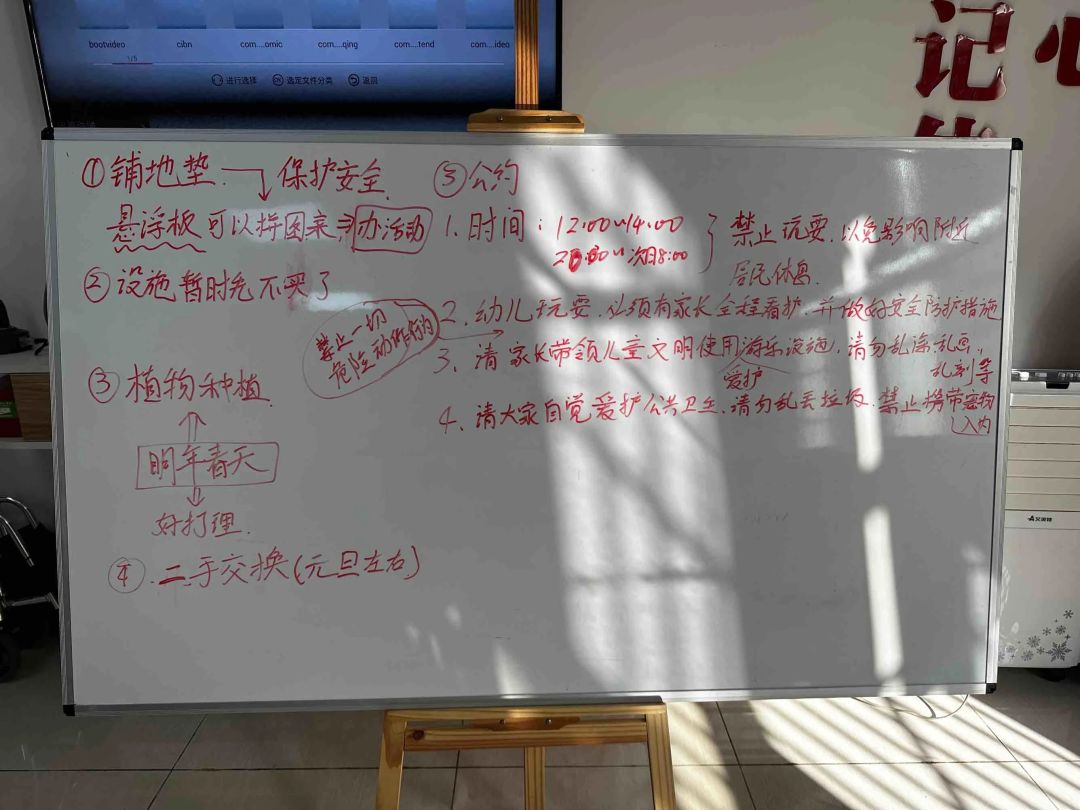 bootvideo cibn com....omic com....qing com....tend com....ideo
1/5
进行选择 OK 选定文件分类 返回
记 心
①铺地垫 → 保护安全
悬浮板可以拼图案 ⇒ 办活动
②设施暂时先不买了
③植物种植
明年春天
好打理
④.二手交换(元旦左右)
③公约
1.时间：12:00~14:00
20:00~次日8:00
禁止玩耍.以免影响附近
居民休息.
禁止一切
危险动作的
2.幼儿玩耍.必须有家长全程看护.并做好安全防护措施
3.请家长带领儿童文明使用游乐设施,请勿乱涂.乱画、
爱护
乱刻等
4、请大家自觉爱护公共卫生,请勿乱丢垃圾.禁止携带宠物
入内
艾美特